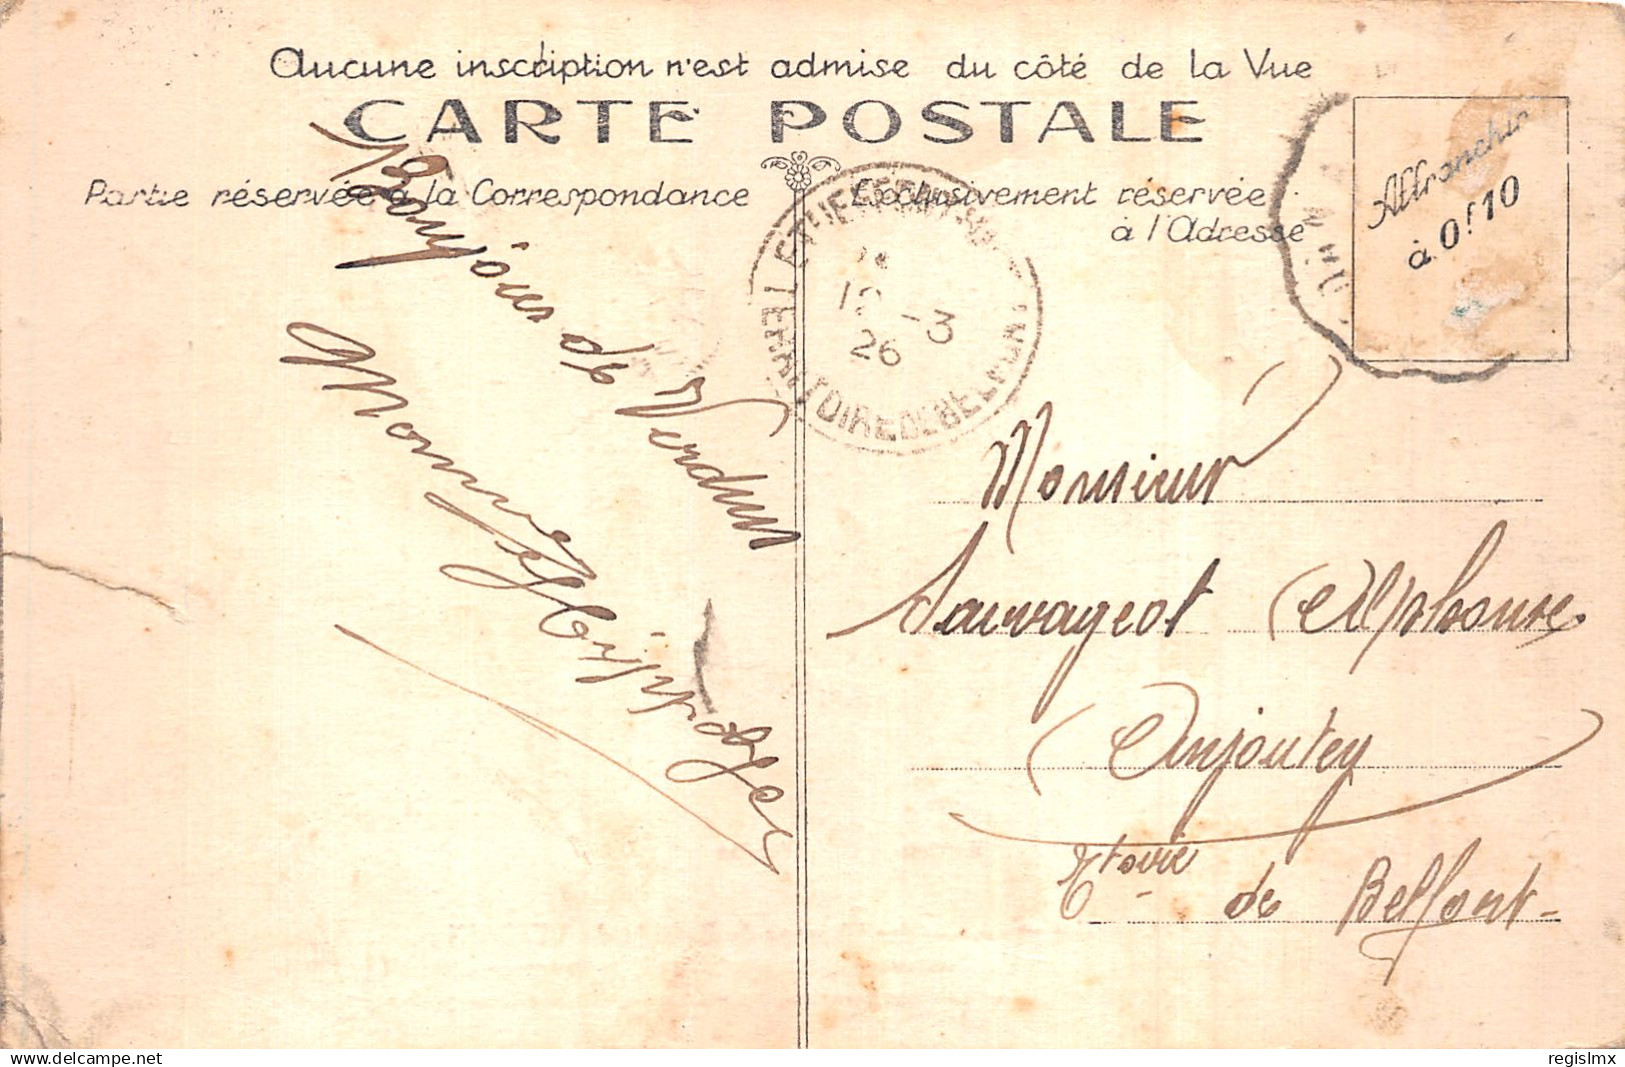 Aucune inscription n'est admise du côté de la Vue
CARTE POSTALE
Partie réservée à la Correspondance
Exclusivement réservée
à l'Adresse
Affranchir
à 0f.10
12 -3
26
TERRITOIRE DE BELFORT
Bonjour de Verdun
Monsieur
Sauvageot Alphonse
Anjoutey
Ttoire
de Belfort
delcampe.net
regislmx